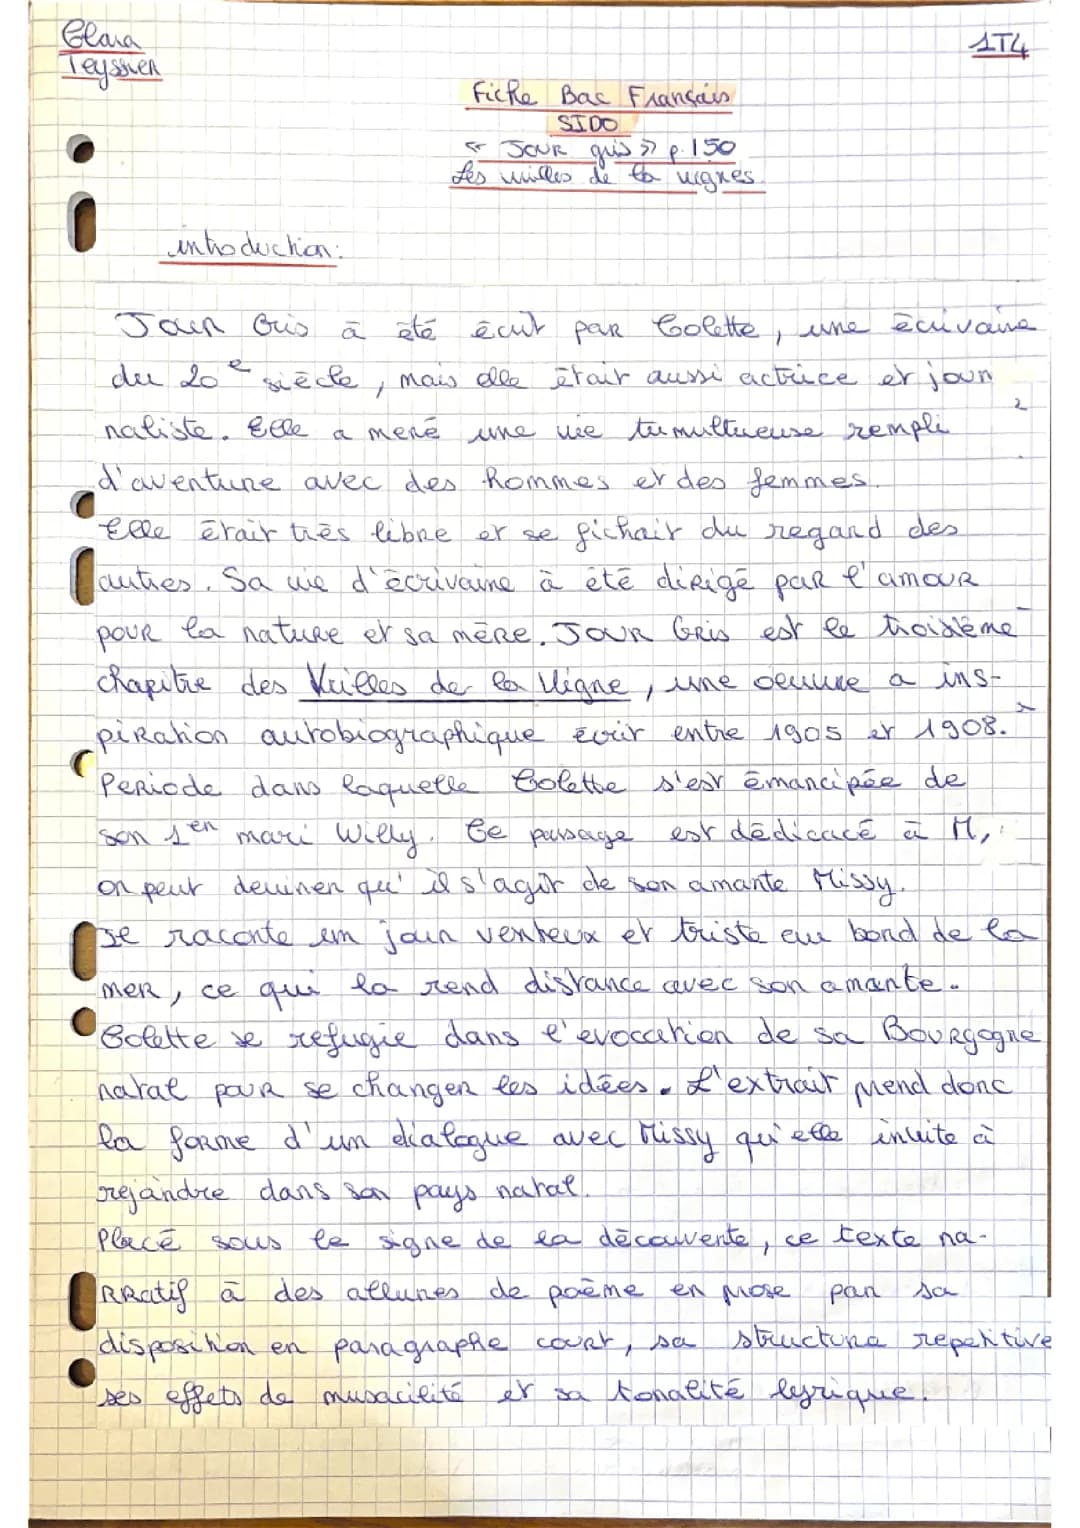 Clara
Teyssier
1T4
Fiche Bac Français
SIDO
« Jour gris » p.150
Les vrilles de la vignes
introduction:
Jour Gris à été écrit par Colette, une écrivaine
du 20e siècle, mais elle était aussi actrice et jour
naliste. Elle a mené une vie tumultueuse rempli
d'aventure avec des hommes et des femmes.
Elle était très libre et se fichait du regard des
autres. Sa vie d'écrivaine à été dirigé par l'amour
pour la nature et sa mère. Jour Gris est le troisième
chapitre des Vrilles de la Vigne, une oeuvre a ins-
piration autobiographique écrit entre 1905 et 1908.
Periode dans laquelle Colette s'est émancipée de
son 1er mari Willy. Ce passage est dédicacé à M,
on peut deviner qu'il s'agit de son amante Missy.
Se raconte un jour venteux et triste au bord de la
mer, ce qui la rend distance avec son amante.
Colette se refugie dans l'evocation de sa Bourgogne
natal pour se changer les idées. L'extrait prend donc
la forme d'un dialogue avec Missy qu'elle invite à
rejoindre dans son pays natal.
Placé sous le signe de la découverte, ce texte na-
rratif à des allures de poème en prose par sa
disposition en paragraphe court, sa structure repetitive
ses effets de musacilité et sa tonalité lyrique.